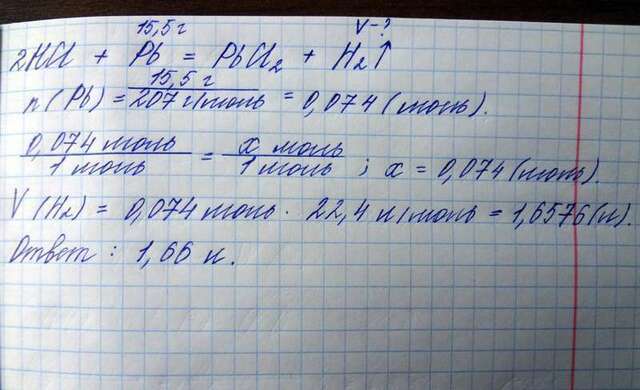 15,5 г V-?
2HCl + Pb = PbCl₂ + H₂↑
15,5 г
n(Pb) = 207 г/моль = 0,074 (моль).
0,074 моль = x моль
1 моль 1 моль ; x = 0,074 (моль).
V(H₂) = 0,074 моль · 22,4 л/моль = 1,6576 (л).
Ответ : 1,66 л.